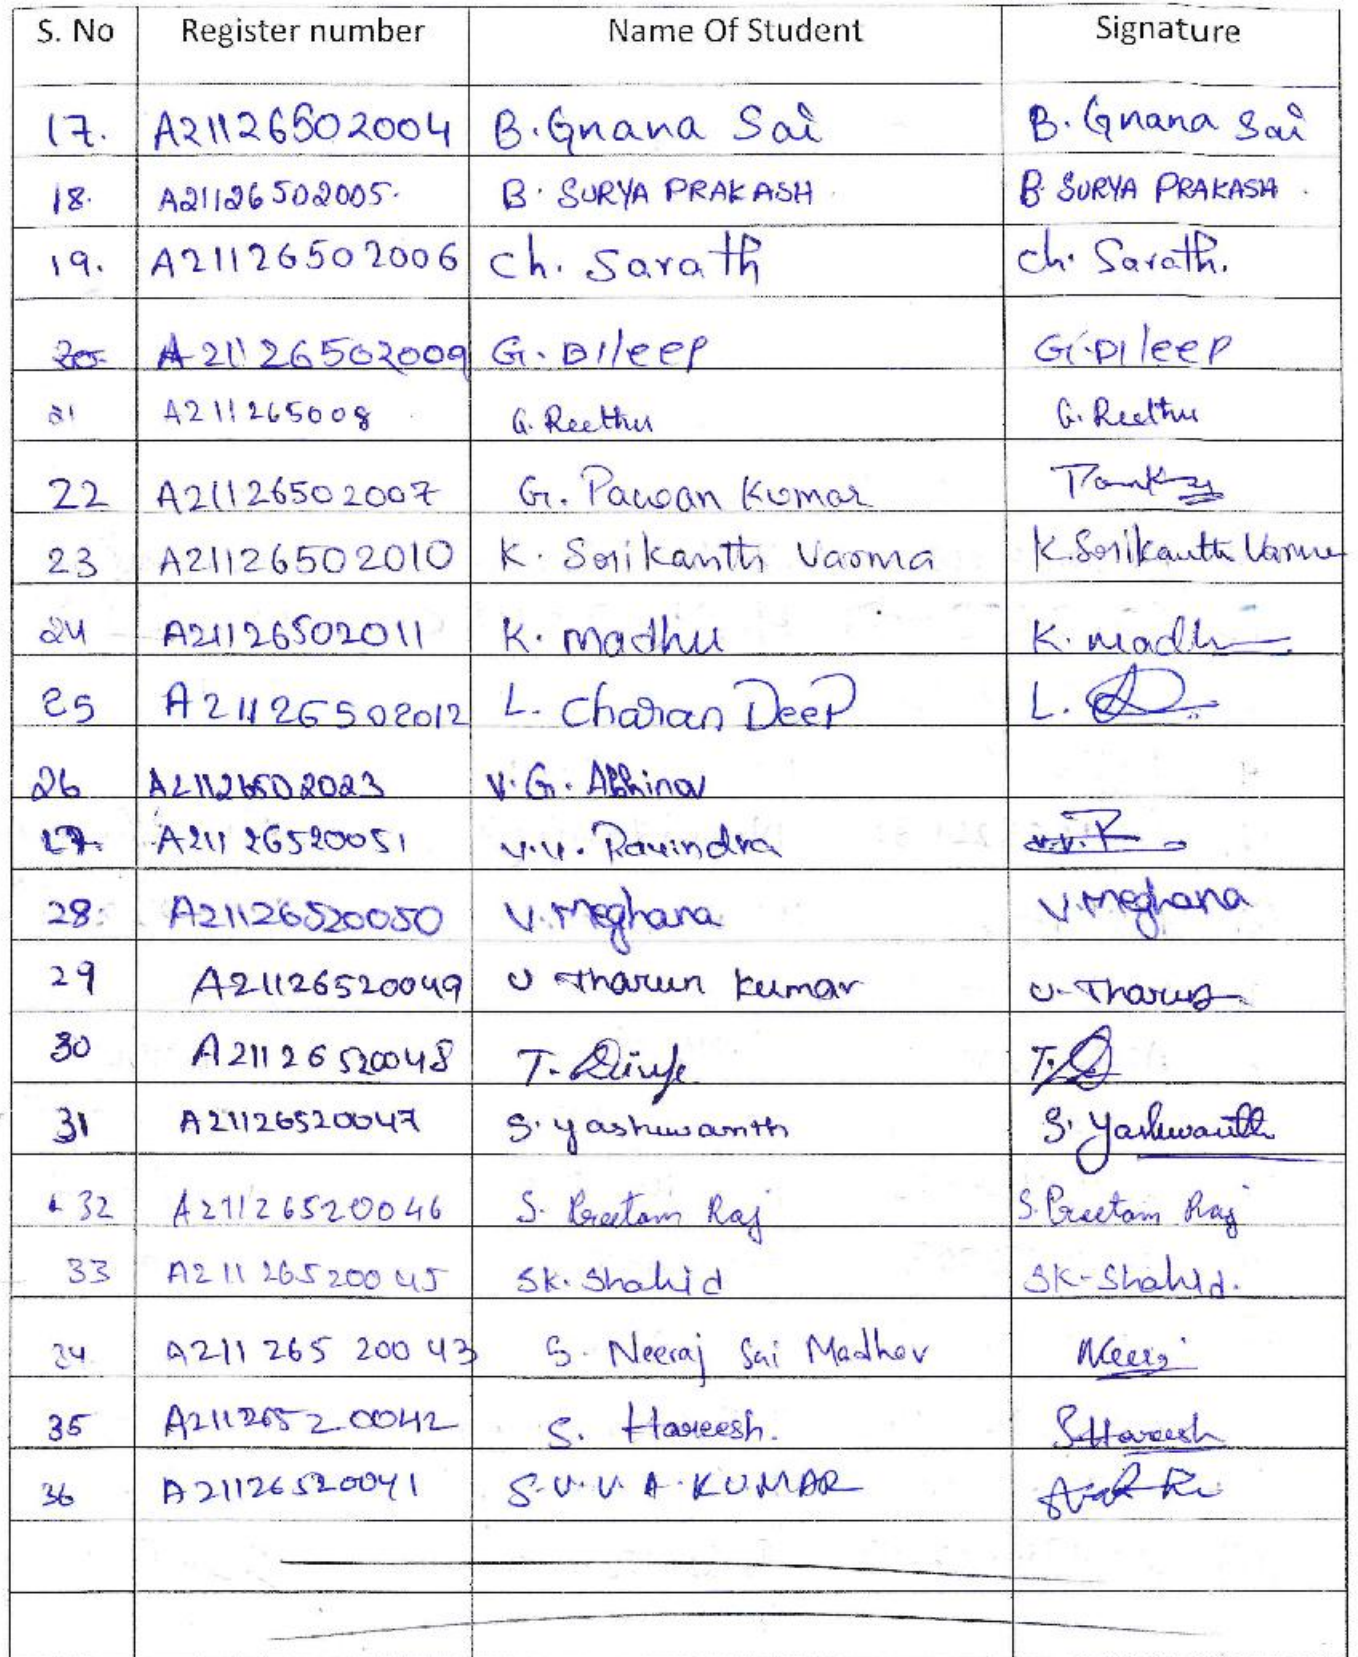 S. No Register number Name Of Student Signature
17. A21126502004 B. Gnana Sai B. Gnana Sai
18. A21126502005. B. SURYA PRAKASH B. SURYA PRAKASH
19. A21126502006 Ch. Sarath Ch. Sarath.
20 A21126502009 G. Dileep G. Dileep
21 A211265008 G. Reethu G. Reethu
22 A21126502007 G. Pawan Kumar
23 A21126502010 K. Srikanth Varma K. Srikanth Varma
24 A21126502011 K. Madhu K. Madhu
25 A21126502012 L. Charan Deep L.
26 A21126502023 V.G. Abhinav
17. A21126520051 V.V. Ravindra V.V. R
28. A21126520050 V. Meghana V. Meghana
29 A21126520049 U Tharun kumar U. Tharun
30 A21126520048 T. T.
31 A21126520047 S. yashwanth S. Yashwanth
32 A21126520046 S. Preetam Raj S. Preetam Raj
33 A21126520045 SK. Shahid SK-Shahid.
34 A21126520043 S. Neeraj Sai Madhav Neeraj
35 A21126520042 S. Hareesh. S. Hareesh
36 A21126520041 S.V.V.A.KUMAR